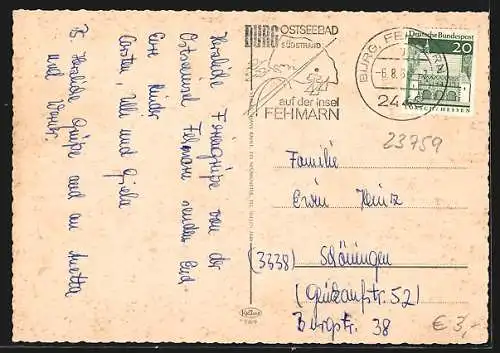 BURG OSTSEEBAD
SÜDSTRAND
auf der Insel
FEHMARN
BURG, FEHMARN
-6.8.6
244
Deutsche Bundespost
20
LORSCH/HESSEN
23759
Herzliche Feriengrüße von der
Ostseeinsel Fehmarn senden Euch
Eure Kinder
Carsten, Ulli und Gisela
P.S. Herzliche Grüße auch an Anetta
und Werner
Familie
Erwin Heinz
(3338) Schöningen
52)
Burgstr. 38
€ 3,-